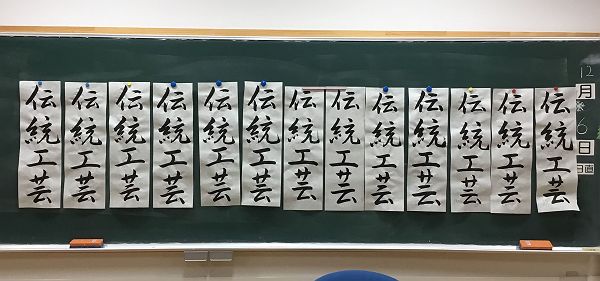 12月
6日
日直
伝統工芸
伝統工芸
伝統工芸
伝統工芸
伝統工芸
伝統工芸
伝統工芸
伝統工芸
伝統工芸
伝統工芸
伝統工芸
伝統工芸
伝統工芸